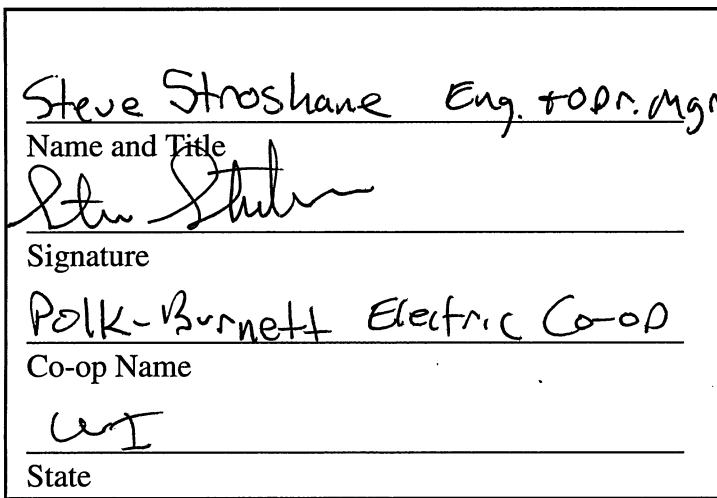 Steve Stroshane Eng. + Opr. Mgr
Name and Title
Signature
Polk-Burnett Electric Co-op
Co-op Name
WI
State